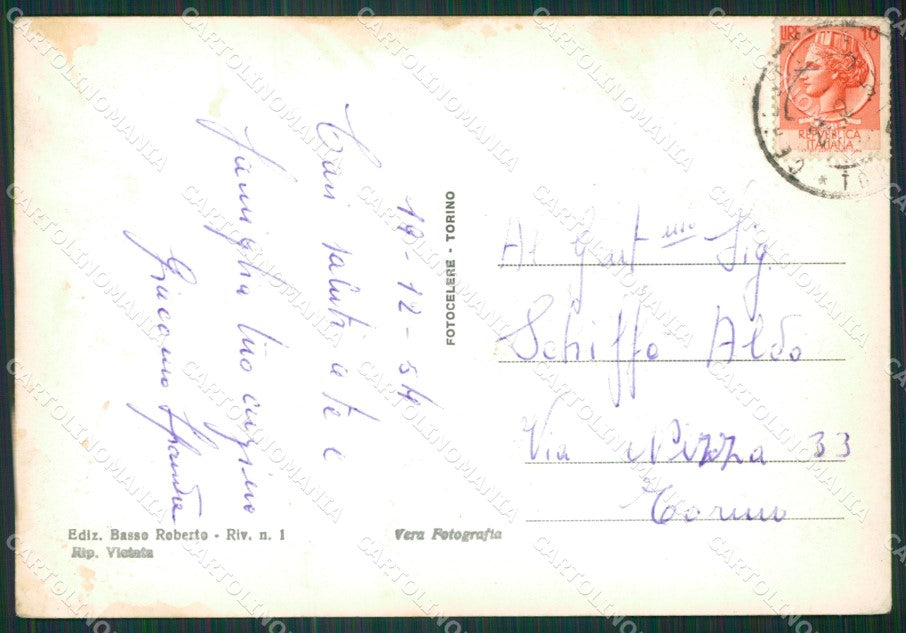 LIRE 10
REPVBBLICA
ITALIANA
19-12-54
Cari saluti a te e
famiglia tuo cugino
Giacomo
FOTOCELERE - TORINO
Al Gent mo Sig.
Schiffo Aldo
Via Nizza 33
Torino
Ediz. Basso Roberto - Riv. n. 1
Rip. Vietata
Vera Fotografia
CARTOLINOMANIA